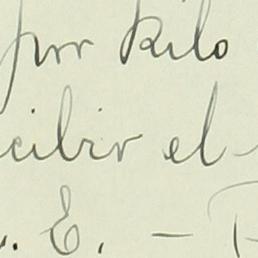 por Kilo
cibir el
E. —